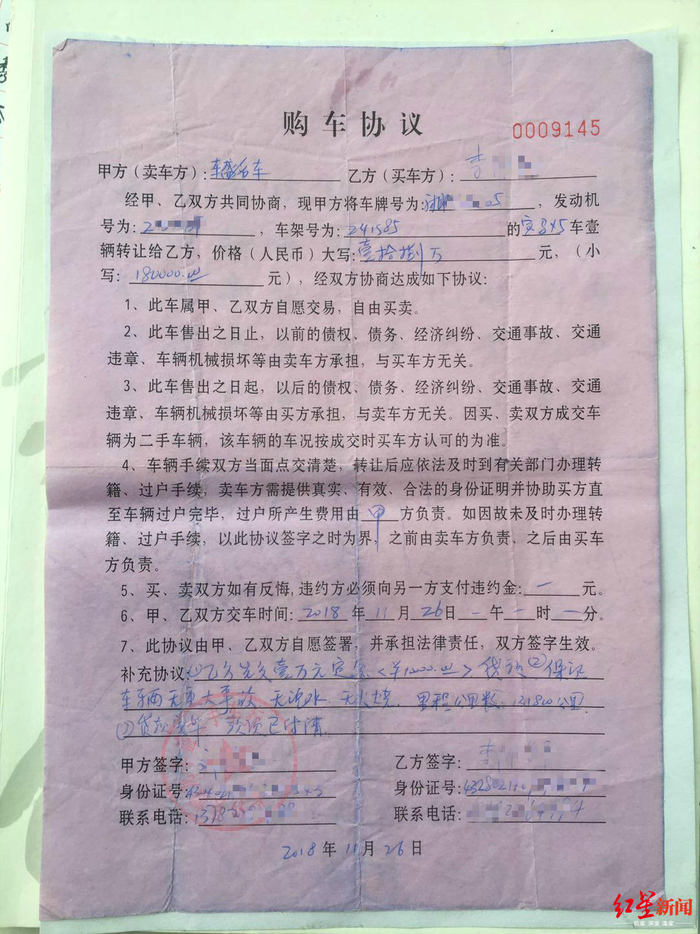 购车协议
0009145
甲方（卖车方）: 名车 乙方（买车方）: 李
经甲、乙双方共同协商，现甲方将车牌号为: 05，发动机
号为: 2，车架号为: 241585 的宝马X5车壹
辆转让给乙方，价格（人民币）大写: 壹拾捌万元，（小
写: 180000.00 元），经双方协商达成如下协议:
1、此车属甲、乙双方自愿交易，自由买卖。
2、此车售出之日止，以前的债权、债务、经济纠纷、交通事故、交通
违章、车辆机械损坏等由卖车方承担，与买车方无关。
3、此车售出之日起，以后的债权、债务、经济纠纷、交通事故、交通
违章、车辆机械损坏等由买方承担，与卖车方无关。因买、卖双方成交车
辆为二手车辆，该车辆的车况按成交时买车方认可的为准。
4、车辆手续双方当面点交清楚，转让后应依法及时到有关部门办理转
籍、过户手续，卖车方需提供真实、有效、合法的身份证明并协助买方直
至车辆过户完毕，过户所产生费用由 甲 方负责。如因故未及时办理转
籍、过户手续，以此协议签字之时为界，之前由卖车方负责，之后由买车
方负责。
5、买、卖双方如有反悔，违约方必须向另一方支付违约金: 一 元。
6、甲、乙双方交车时间: 2018 年 11 月 26 日 一 午 一 时 一 分。
7、此协议由甲、乙双方自愿签署，并承担法律责任，双方签字生效。
补充协议: ①乙方先交壹万元定金 ②保证
车辆无重大事故 无泡水 无火烧. 里程公里数. 131800公里.
款项已付清
甲方签字: 乙方签字: 李
身份证号: 身份证号:
联系电话: 联系电话:
2018 年 11 月 26 日
红星新闻